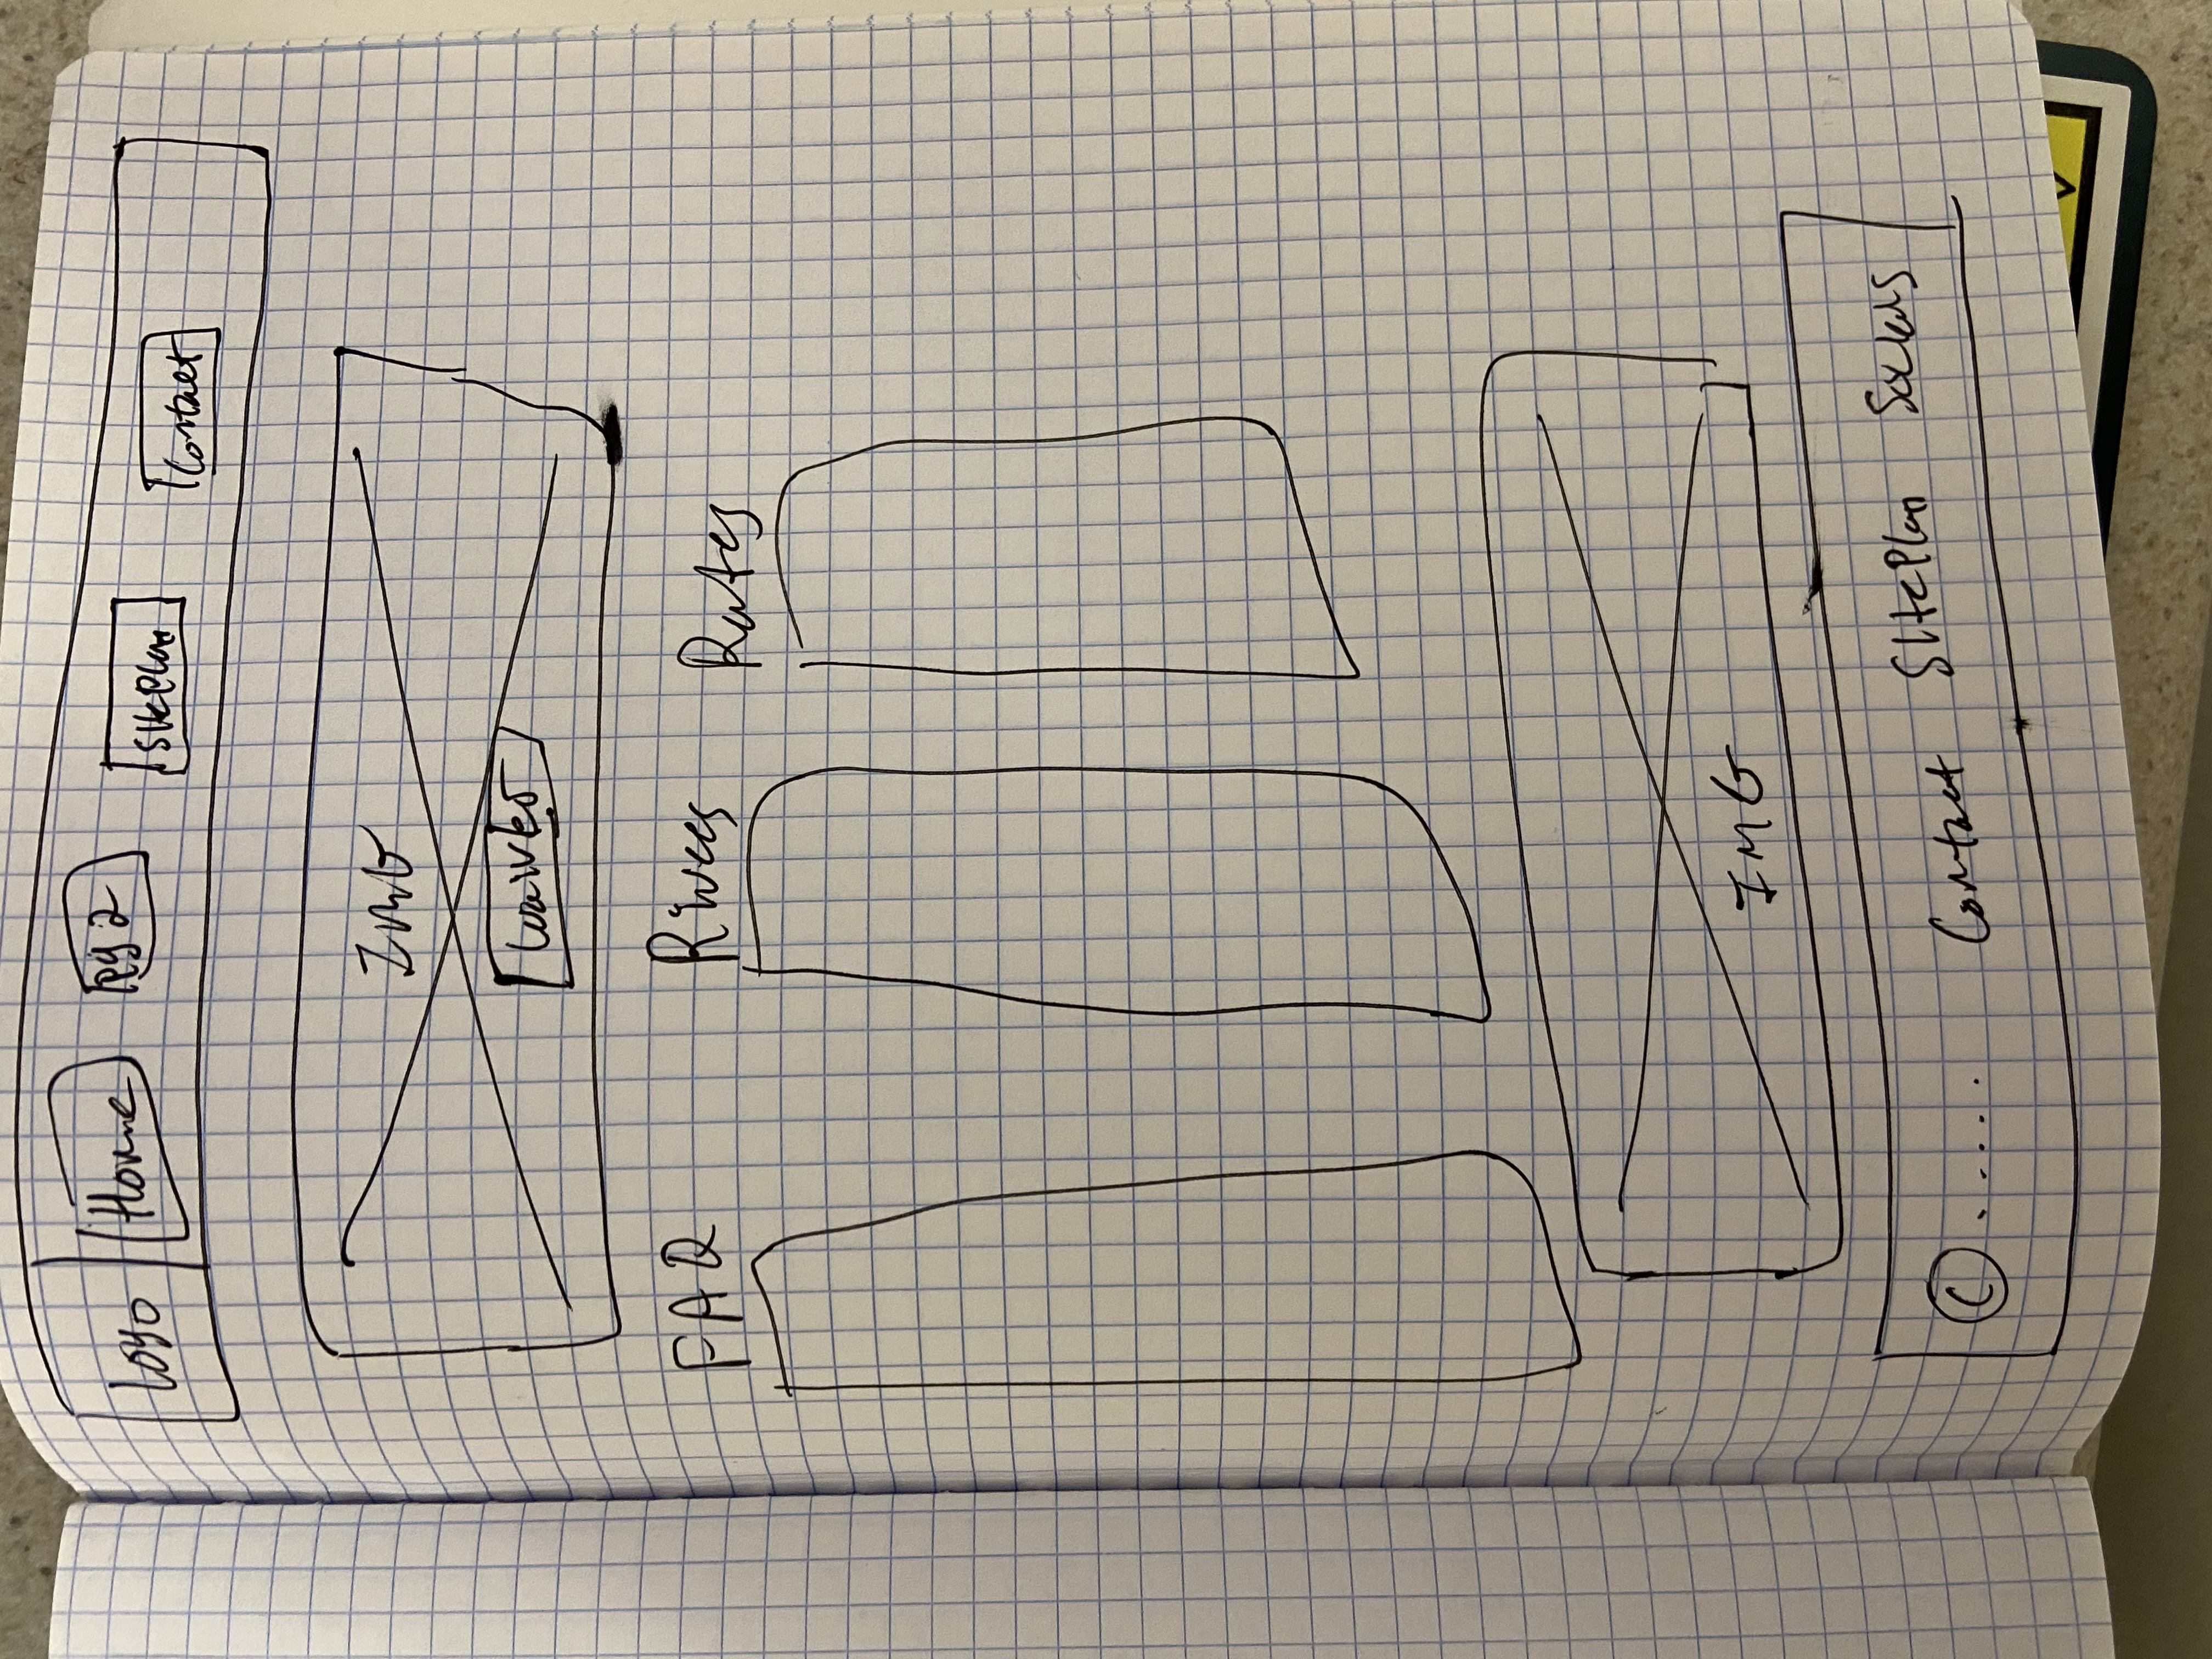 Logo Home Pg 2 SitePlan Contact
IMG
Waiver
FAQ Rivers Rates
IMG
© ..... Contact SitePlan Socials